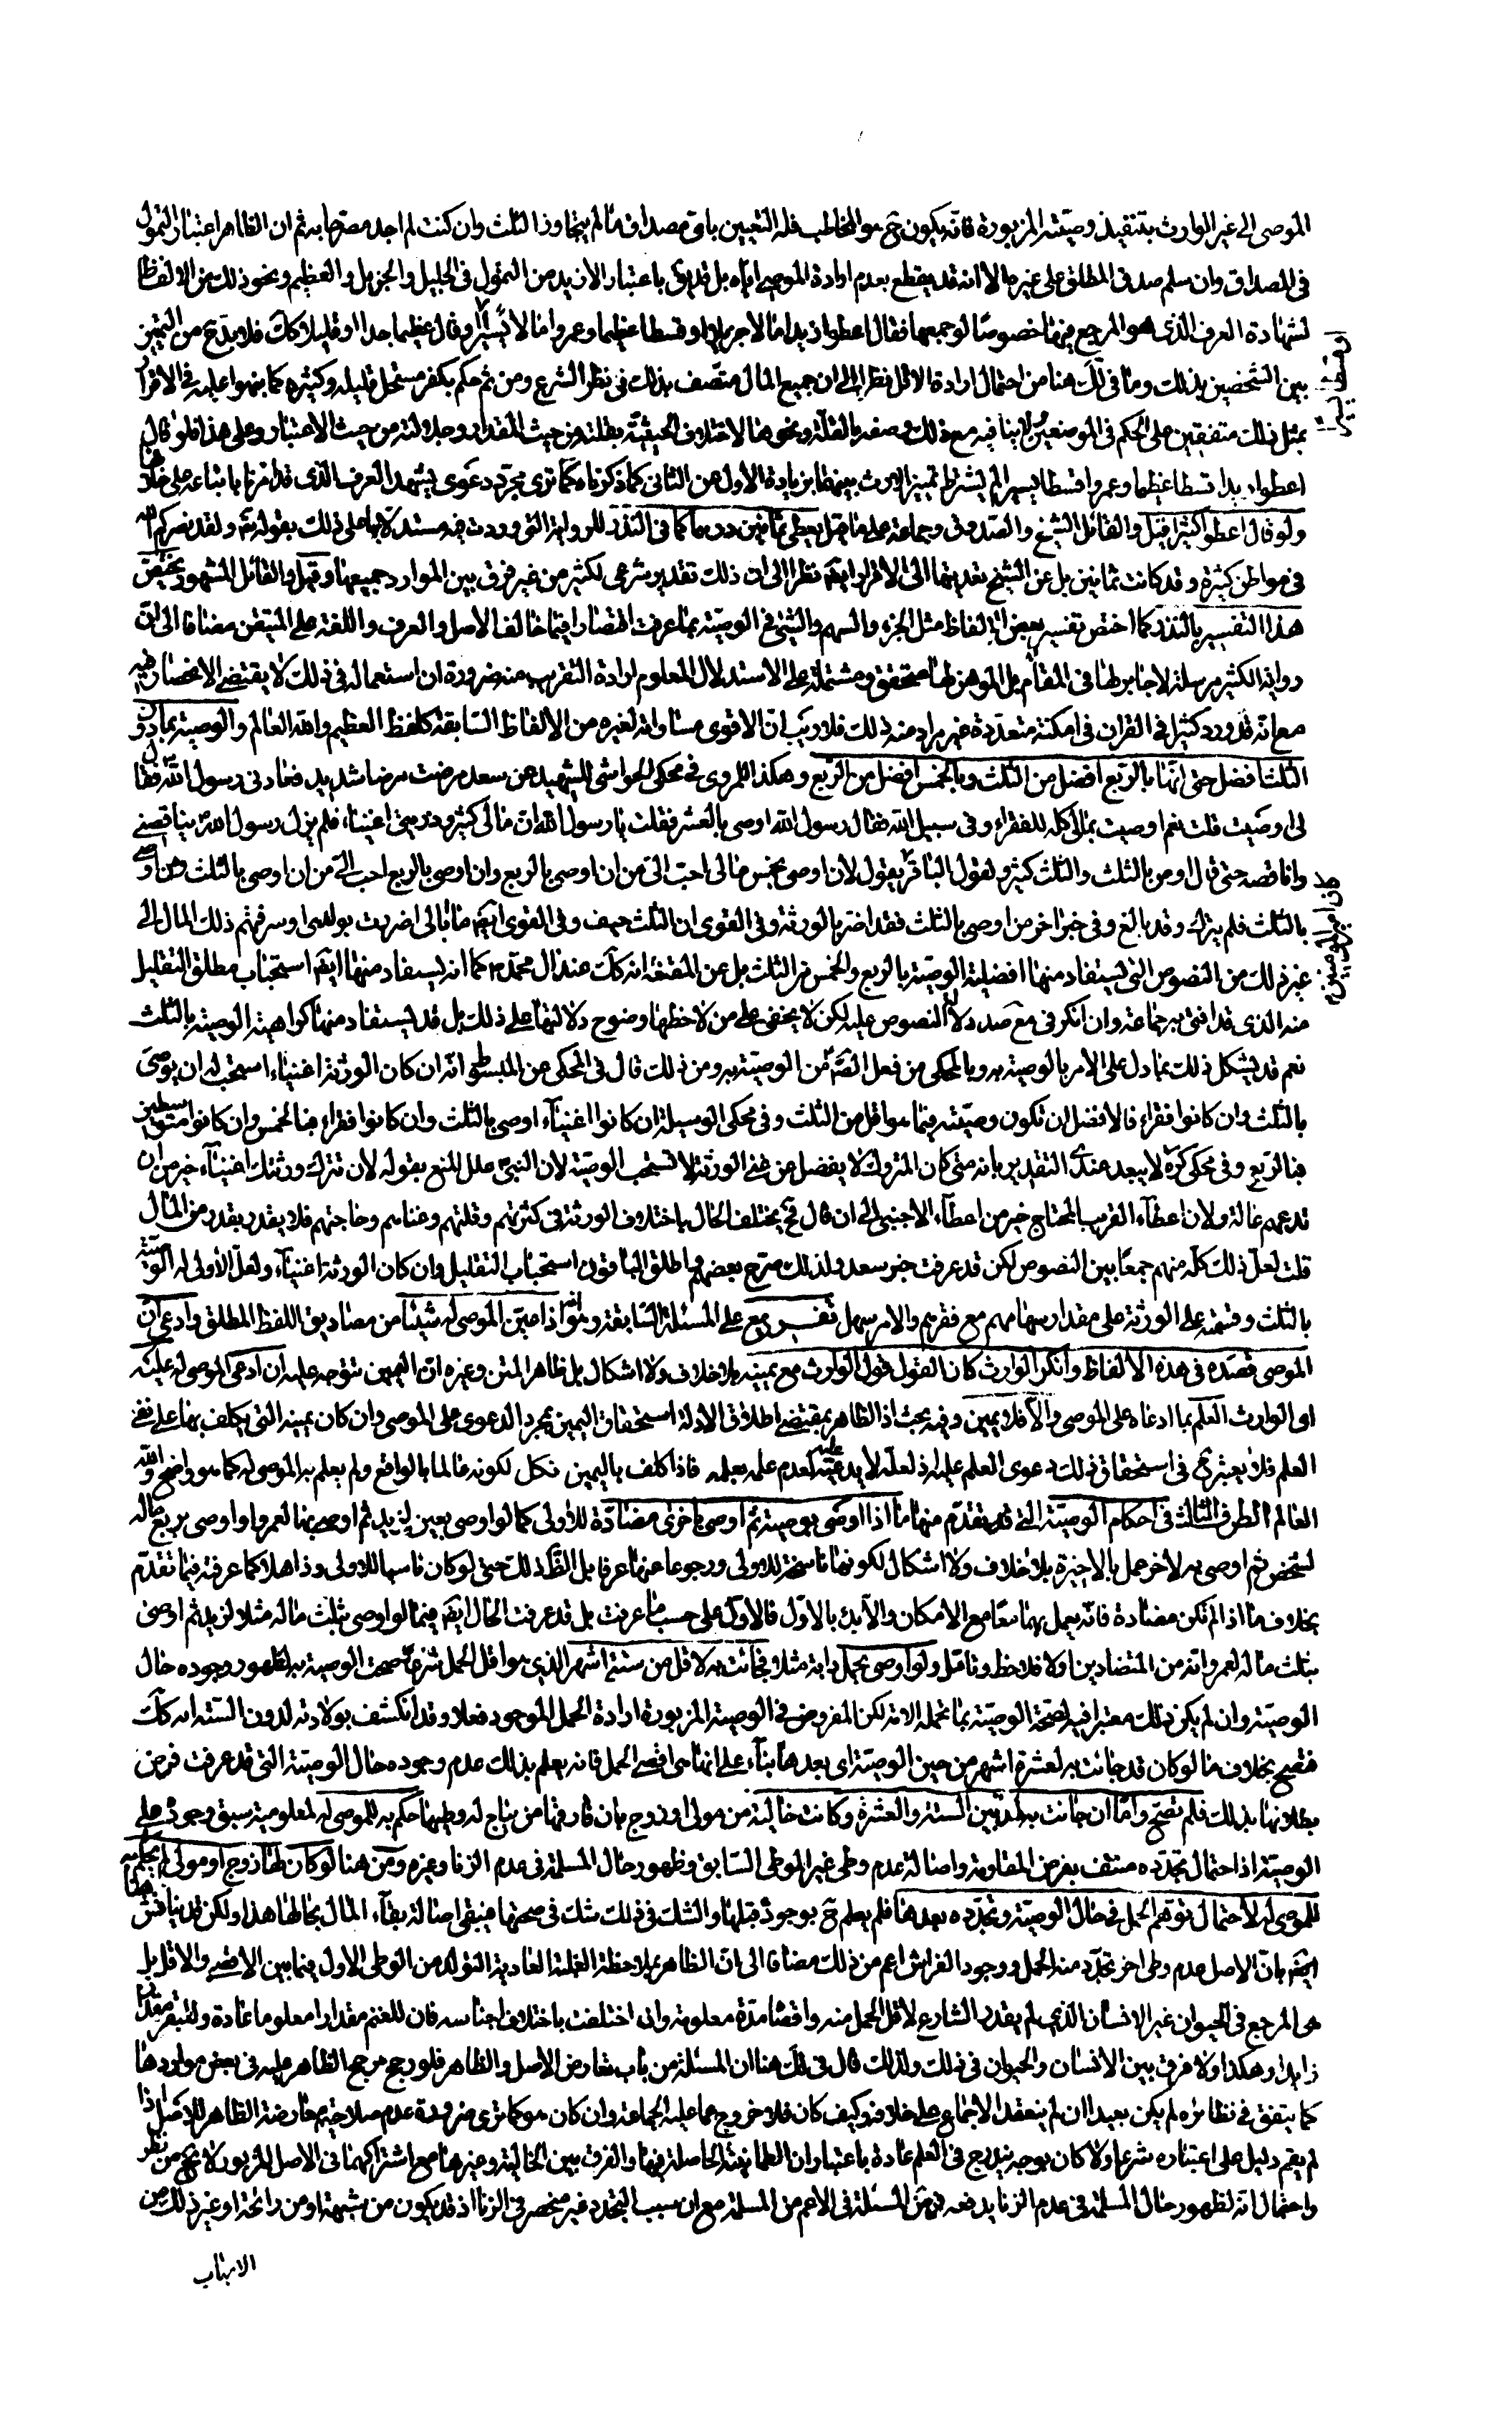 الموصى الى غير الوارث بتنفيذ وصيته المزبورة فانه يكون ح هو المخاطب فله التعيين باى مصداق ما لم يتجاوز الثلث وان كنت لم اجد مصرحا به ثم ان الظاهر اعتبار التمول
فى المصداق وان سلم صدق المطلق على غيره الا انه قد يقطع بعدم ارادة الموصى اياه بل قد يق باعتبار الازيد من التمول فى الجليل والجزيل والعظيم ونحو ذلك من الالفاظ
لشهادة العرف الذى هو المرجع فيها خصوصا لو جمعها فقال اعطوا زيدا مالا جزيلا او قسطا عظيما وعمروا مالا يسيرا او قال عظيما جدا او قليلا كك فلا بد ح من التميز
بين الشخصين بذلك وما فى لك هنا من احتمال ارادة الاقل نظرا الى ان جميع المال متصف بذلك فى نظر الشرع ومن ثم حكم بكفر مستحل قليله وكثيره كما نبهوا عليه فى الاقرار
بمثل ذلك متفقين على الحكم فى الموضعين لا ينافيه مع ذلك وصفه بالقلة ونحوها لاختلاف الحيثية بقلته من حيث المقدار وجلالته من حيث الاعتبار وعلى هذا فلو قال
اعطوا زيدا قسطا عظيما وعمروا قسطا يسيرا لم يشترط تميز الارث بينهما بزيادة الاول عن الثانى كما ذكرناه كما ترى مجرد دعوى يشهد العرف الذى قد امرنا باتباعه على خلافها
ولو قال اعطوا كثيرا قيل والقائل الشيخ والصدوق وجماعة على ما قيل يعطى ثمانين درهما كما فى النذر للرواية التى وردت فيه مستدلا بها على ذلك بقوله تع ولقد نصركم الله
فى مواطن كثيرة وقد كانت ثمانين بل عن الشيخ تعديتها الى الاقرار ايضا نظرا الى ان ذلك تقدير شرعى لكثير من غير فرق بين الموارد جميعها وقيل والقائل المشهور يختص
هذا التفسير بالنذر كما اختص تفسير بعض الالفاظ مثل الجزء والسهم والشئ فى الوصية بما عرفت اقتصارا فيما خالف الاصل والعرف واللغة على المتيقن مضافا الى ان
رواية الكثير مرسلة لا جابر لها فى المقام بل الموهن لها متحقق ومشتملة على الاستدلال المعلوم ارادة التقريب منه ضرورة ان استعماله فى ذلك لا يقتضى الانحصار فيه
مع انه قد ورد كثيرا فى القران فى امكنة متعددة غير مراد منه ذلك فلا ريب ان الاقوى مساواته لغيره من الالفاظ السابقة كلفظ العظيم والله العالم والوصية بما دون
الثلث افضل حتى انها بالربع افضل من الثلث وبالخمس افضل من الربع وهكذا للمروى فى محكى الحواشى للشهيد عن سعد مرضت مرضا شديدا فعادنى رسول الله فقال
لى اوصيت قلت نعم اوصيت بمالى كله للفقراء وفى سبيل الله فقال رسول الله اوصى بالعشر فقلت يا رسول الله ان مالى كثير وذريتى اغنياء فلم يزل رسول الله يناقصنى
واناقصه حتى قال اوص بالثلث والثلث كثير ولقول الباقر يقول لان اوصى بخمس مالى احب الى من ان اوصى بالربع وان اوصى بالربع احب الى من ان اوصى بالثلث ومن اوصى
بالثلث فلم يترك وقد بالغ وفى خبر اخر من اوصى بالثلث فقد اضر بالورثة وفى القوى ان الثلث حيف وفى القوى ايضا ما ابالى اضررت بولدى او سرقتهم ذلك المال الى
غير ذلك من النصوص التى يستفاد منها افضلية الوصية بالربع والخمس من الثلث بل عن المقنعة انه كك عند ال محمد كما انه يستفاد منها ايضا استحباب مطلق التقليل
منه الذى قد افتى به جماعة وان انكر فى مع صد دلالة النصوص عليه لكن لا يخفى على من لاحظها وضوح دلالتها على ذلك بل قد يستفاد منها كراهية الوصية بالثلث
نعم قد يشكل ذلك بما دل على الامر بالوصية به وبالمحكى من فعل الصم من الوصية به ومن ذلك قال فى المحكى عن المبسوط انه ان كان الورثة اغنياء استحب له ان يوصى
بالثلث وان كانوا فقراء فالافضل ان تكون وصيته فيما هو اقل من الثلث وفى محكى الوسيلة ان كانوا اغنياء اوصى بالثلث وان كانوا فقراء فبالخمس وان كانوا متوسطين
فبالربع وفى محكى كره لا يبعد عندى التقدير بانه متى كان المتروك لا يفضل عن غنى الورثة لا تستحب الوصية لان النبى علل المنع بقوله لان تترك ورثتك اغنياء خير من ان
تدعهم عالة ولان اعطاء القريب المحتاج خير من اعطاء الاجنبى الى ان قال فح يختلف الحال باختلاف الورثة فى كثرتهم وقلتهم وغناهم وحاجتهم فلا يقدر بقدر من المال
قلت لعل ذلك كله منهم جمعا بين النصوص لكن قد عرفت خبر سعد ولذلك صرح بعضهم واطلق الباقون استحباب التقليل وان كان الورثة اغنياء ولعل الاولى له الوصية
بالثلث وقسمته على الورثة على مقدار سهامهم مع فقرهم والامر سهل تفريع على المسئلة السابقة وهو انه اذا عين الموصى له شيئا من مصاديق اللفظ المطلق وادعى ان
الموصى قصده فى هذه الالفاظ وانكر الوارث كان القول قول الوارث مع يمينه بلا خلاف ولا اشكال بل ظاهر المتن وغيره ان اليمين تتوجه عليه ان ادعى الموصى له عليه
اى الوارث العلم بما ادعاه على الموصى والا فلا يمين وفيه بحث اذ الظاهر بمقتضى اطلاق الادلة استحقاق اليمين بمجرد الدعوى على الموصى وان كان يمينه التى يكلف بها على نفى
العلم فلا يعتبر ح فى استحقاق ذلك دعوى العلم عليه اذ لعله لا يدعيه عليه لعدم علمه بعلمه فاذا كلف باليمين نكل لكونه عالما بالواقع ولم يعلم به الموصى له كما هو واضح والله
العالم الطرف الثالث فى احكام الوصية التى قد يتقدم منها ما اذا اوصى بوصية ثم اوصى باخرى مضادة للاولى كما لو اوصى بعين لزيد ثم اوصى بها لعمرو او اوصى بربع ماله
لشخص ثم اوصى به لاخر عمل بالاخيرة بلا خلاف ولا اشكال لكونها ناسخة للاولى ورجوعا عنها عرفا بل الظ ذلك حتى لو كان ناسيا للاولى وذاهلا كما عرفته فيما تقدم
بخلاف ما اذا لم تكن مضادة فانه يعمل بهما معا مع الامكان والا بدئ بالاول فالاول على حسب ما عرفت بل قد عرفت الحال ايضا فيما لو اوصى بثلث ماله مثلا لزيد ثم اوصى
بثلث ماله لعمرو انه من المتضادين اولا فلاحظ وتامل ولو اوصى بحمل دابة مثلا فجائت به لاقل من ستة اشهر الذى هو اقل الحمل شرعا صحت الوصية به لظهور وجوده حال
الوصية وان لم يكن ذلك معتبرا فيه لصحة الوصية بما تحمله الامة لكن المفروض فى الوصية المزبورة ارادة الحمل الموجود فعلا وقد انكشف بولادته لدون الستة انه كك
فتصح بخلاف ما لو كان قد جائت به لعشرة اشهر من حين الوصية اى بعدها بناء على انها اقصى الحمل فانه يعلم بذلك عدم وجوده حال الوصية التى قد عرفت فرض
بطلانها بذلك فلم تصح واما ان جائت به لمدة بين الستة والعشرة وكانت خالية من مولى او زوج بان فارقها من يباح له وطيها حكم به للموصى له لمعلومية سبق وجوده على
الوصية اذ احتمال تجدده منتف بفرض المفارقة واصالة عدم وطى غير الوطى السابق وظهور حال المسلمة فى عدم الزنا وغيره ومن هنا لو كان لها زوج او مولى لم يحكم به
للموصى له لاحتمال توهم الحمل فى حال الوصية وتجدده بعدها فلم يعلم ح بوجوده قبلها والشك فى ذلك شك فى صحتها فيبقى اصالة بقاء المال بحالها هذا ولكن قد يناقش هنا
ايضا بان الاصل عدم وطى اخر تجدد منه الحمل ووجود الفراش اعم من ذلك مضافا الى ان الظاهر بملاحظة الغلبة العادية التولد من الوطى الاول فيما بين الاقصى والاقل بل
هى المرجع فى الحيوان غير الانسان الذى لم يقدر الشارع لاقل الحمل منه واقصاه مدة معلومة وان اختلفت باختلاف اجناسه فان للغنم مقدارا معلوما عادة وللبقر مقدارا
زايدا وهكذا ولا فرق بين الانسان والحيوان فى ذلك ولذلك قال فى لك هنا ان المسئلة من باب تعارض الاصل والظاهر فلو رجح مرجح الظاهر عليه فى بعض مواردها
كما يتفق فى نظائره لم يكن بعيدا ان لم ينعقد الاجماع على خلافه وكيف كان فلا خروج عما عليه الجماعة وان كان هو كما ترى ضرورة عدم صلاحية معارضة الظاهر للاصل اذا
لم يقم دليل على اعتباره شرعا ولا كان بوجه يندرج فى العلم عادة باعتبار ان الطمانينة الحاصلة فيها والفرق بين الخالية وغيرها مع اشتراكهما فى الاصل المزبور لا يخ من نظر
واحتمال انه لظهور حال المسلمة فى عدم الزنا يدفعه فرض المسئلة فى الاعم من المسلمة مع ان سبب التجدد غير منحصر فى الزنا اذ قد يكون من شبهة او من رائحة او غير ذلك من
الاسباب